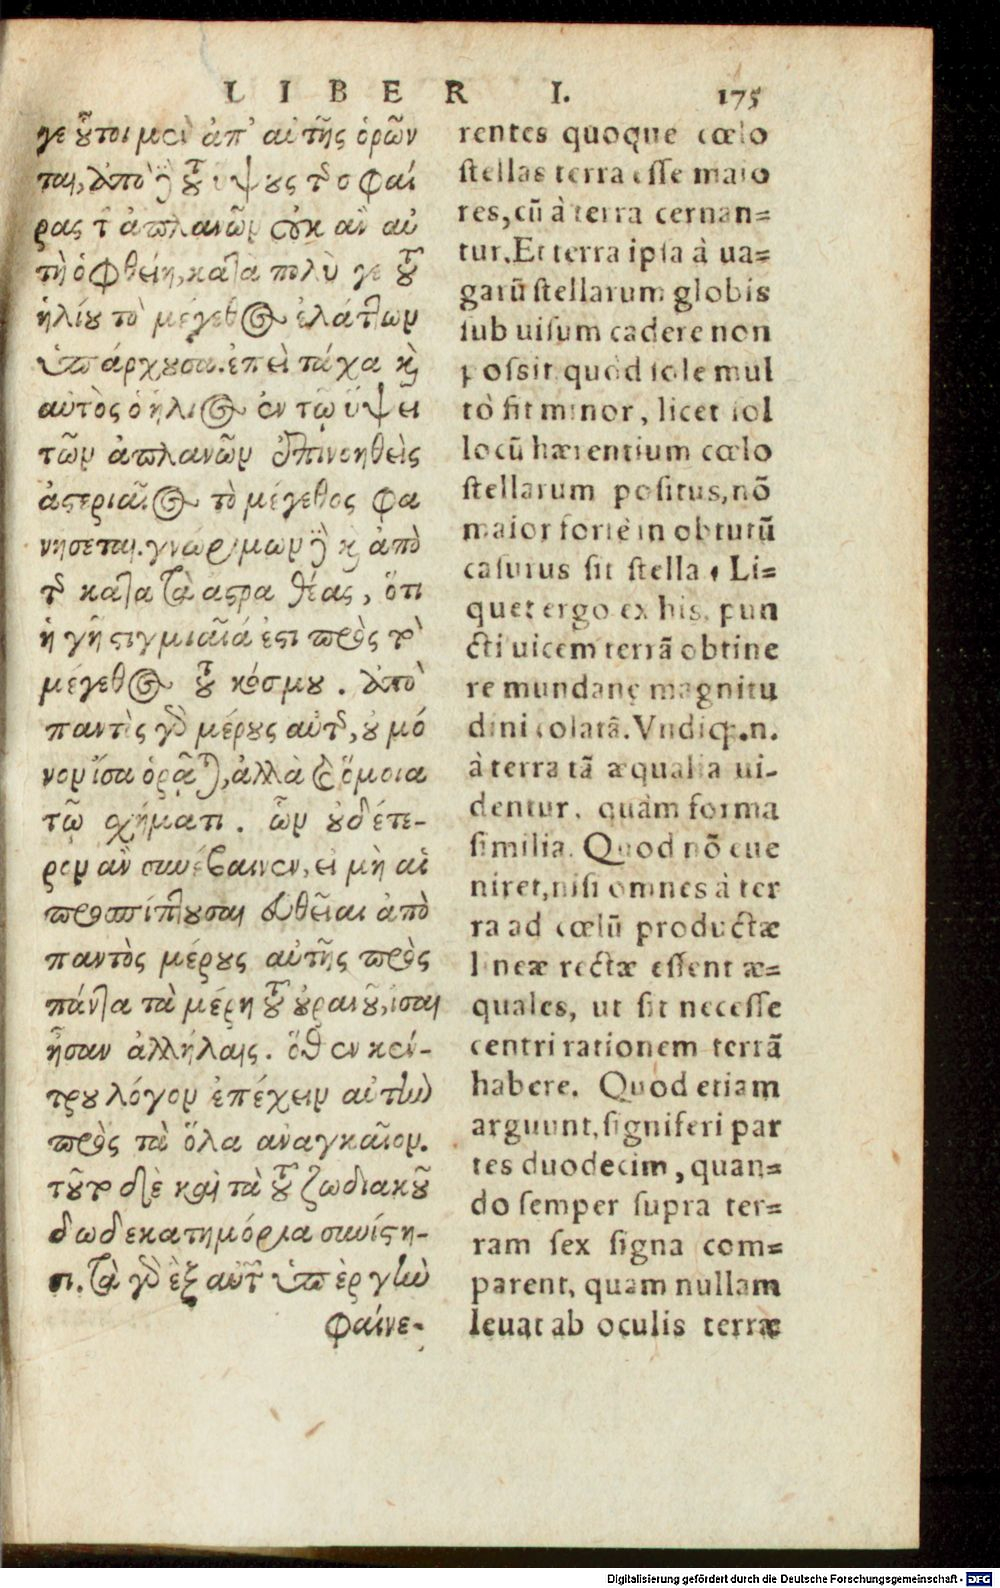 LIBER I. 175
γε ὗτοι μὲν ἀπ' αὐτῆς ὁρῶν
ται, ἀπὸ ὃ τοῦ ὕψους τῆς σφαί
ρας τ ἀπλανῶν οὐκ ἂν αὐ
τὴ ὀφθείη, κατὰ πολύ γε τοῦ
ἡλίου τὸ μέγεθος ἐλάττων
ὑπάρχουσα. ἐπεὶ τάχα καὶ
αὐτὸς ὁ ἥλιος ἐν τῷ ὕψει
τῶν ἀπλανῶν ἐπινοηθεὶς
ἀστεριαῖος τὸ μέγεθος φα
νήσεται. γνώριμων ὃ καὶ ἀπὸ
τῆς κατὰ τὰ ἄστρα θέας, ὅτι
ἡ γῆ στιγμιαῖά ἐστι πρὸς τὸ
μέγεθος τοῦ κόσμου. Ἀπὸ
παντὸς γὰρ μέρους αὐτῆς, οὐ μό
νον ἴσα ὁρᾶται, ἀλλὰ καὶ ὅμοια
τῷ σχήματι. ὧν οὐδέτε-
ρον ἂν συνέβαινεν, εἰ μὴ αἱ
προσπίπτουσαι εὐθεῖαι ἀπὸ
παντὸς μέρους αὐτῆς πρὸς
πάντα τὰ μέρη τοῦ οὐρανοῦ, ἴσαι
ἦσαν ἀλλήλαις. ὅθεν κέν-
τρου λόγον ἐπέχειν αὐτὴν
πρὸς τὰ ὅλα ἀναγκαῖον.
τοῦτο δὲ καὶ τὰ τοῦ ζωδιακοῦ
δωδεκατημόρια συνίστη-
σι. Τὰ γὰρ ἓξ αὐτῶν ὑπὲρ γὴν
φαίνε-
rentes quoque cœlo
stellas terra esse maio
res, cũ à terra cernan=
tur. Et terra ipsa à ua=
garũ stellarum globis
sub uisum cadere non
possit quòd sole mul
tò sit minor, licet sol
locũ hærentium cœlo
stellarum positus, nõ
maior fortè in obtutũ
casurus sit stella. Li=
quet ergo ex his, pun
cti uicem terrã obtine
re mundanę magnitu
dini colatã. Vndiq;.n.
à terra tã æqualia ui-
dentur, quàm forma
similia. Quod nõ eue
niret, nisi omnes à ter
ra ad cœlũ productæ
lineæ rectæ essent æ=
quales, ut sit necesse
centri rationem terrã
habere. Quod etiam
arguunt, signiferi par
tes duodecim, quan=
do semper supra ter=
ram sex signa com=
parent, quam nullam
leuat ab oculis terræ
Digitalisierung gefördert durch die Deutsche Forschungsgemeinschaft - DFG